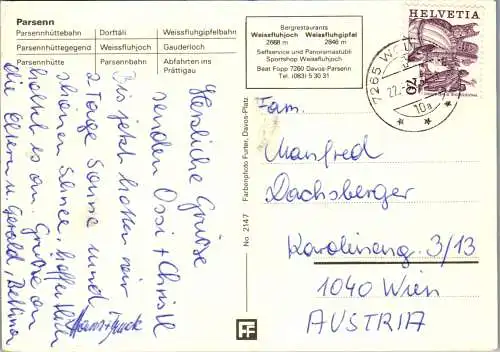 Parsenn
Parsennhüttebahn Dorftäli Weissfluhgipfelbahn
Parsennhüttegegend Weissfluhjoch Gauderloch
Parsennhütte Parsennbahn Abfahrten ins
Prättigau
Bergrestaurants
Weissfluhjoch Weissfluhgipfel
2668 m 2846 m
Selfservice und Panoramastübli
Sportshop Weissfluhjoch
Beat Fopp 7260 Davos-Parsenn
Tel. (083) 5 30 31
HELVETIA
70
7265 WOL
22.
10a
Herzliche Grüsse
senden Ossi + Christl
Bis jetzt hatten wir
2 Tage Sonne und
schönen Schnee, hoffentlich
hält es an. Grüsse an
die Eltern u. Gerald, Bettina
No 2147 Farbenphoto Furter, Davos-Platz
FF
Fam.
Manfred
Dachsberger
Karolineng. 3/13
1040 Wien
AUSTRIA